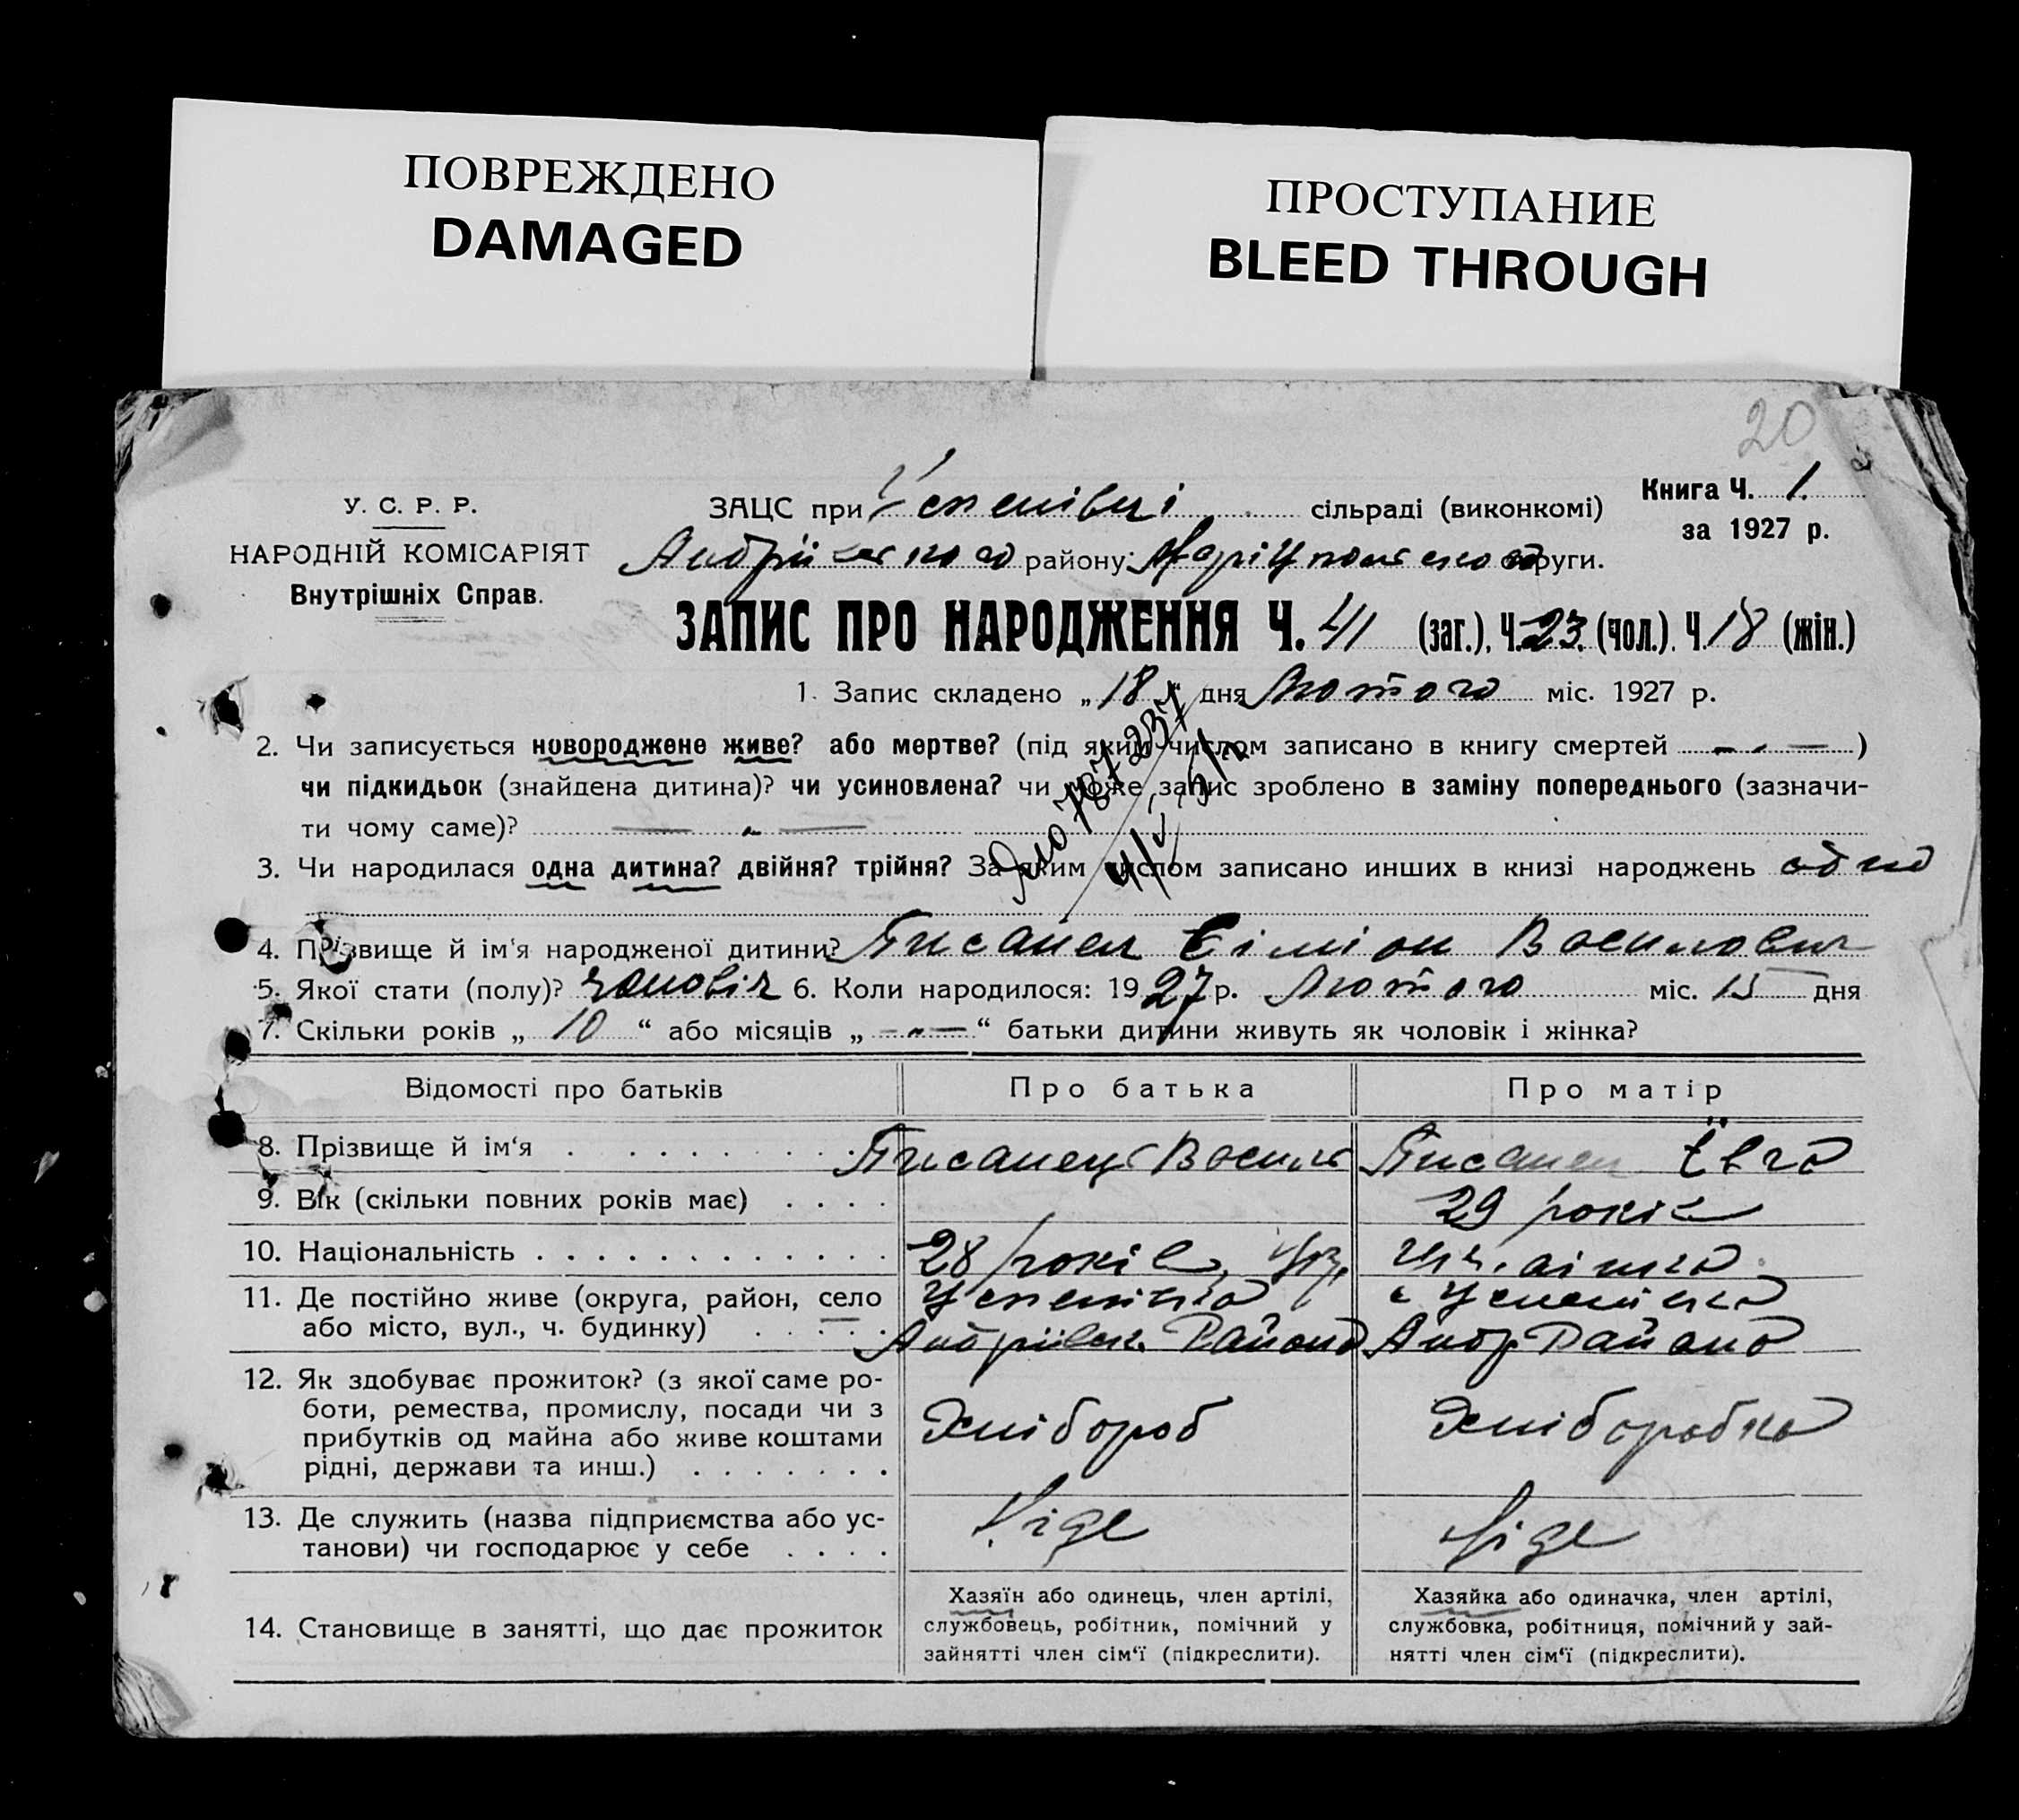 ПОВРЕЖДЕНО
DAMAGED
ПРОСТУПАНИЕ
BLEED THROUGH
20
У. С. Р. Р.
НАРОДНІЙ КОМІСАРІЯТ
Внутрішніх Справ.
ЗАЦС при Успенівці сільраді (виконкомі)
Андріївського району Маріупольського округи.
Книга Ч. 1.
за 1927 р.
ЗАПИС ПРО НАРОДЖЕННЯ Ч. 41 (заг.), Ч. 23. (чол.). Ч. 18 (жін.)
1. Запис складено „18“ дня Лютого міс. 1927 р.
2. Чи записується новороджене живе? або мертве? (під яким числом записано в книгу смертей — „ — )
чи підкидьок (знайдена дитина)? чи усиновлена? чи може запис зроблено в заміну попереднього (зазначи-
ти чому саме)? — „ —
3. Чи народилася одна дитина? двійня? трійня? За яким числом записано инших в книзі народжень одна
4. Прізвище й ім‘я народженої дитини? Писанец Сіміон Василович
5. Якої стати (полу)? чоловіч 6. Коли народилося: 1927 р. Лютого міс. 15 дня
7. Скільки років „ 10 “ або місяців „ — „ — “ батьки дитини живуть як чоловік і жінка?
Відомості про батьків
Про батька
Про матір
8. Прізвище й ім‘я
Писанец Василь
Писанец Євга
9. Вік (скільки повних років має)
29 років
10. Національність
28 років, Укр.
11. Де постійно живе (округа, район, село
або місто, вул., ч. будинку)
Успенівка
Андріївск. Района
Успенівка
Андр Района
12. Як здобуває прожиток? (з якої саме ро-
боти, ремества, промислу, посади чи з
прибутків од майна або живе коштами
рідні, держави та инш.)
Хлібороб
Хліборобка
13. Де служить (назва підприємства або ус-
танови) чи господарює у себе
Ніде
Ніде
14. Становище в занятті, що дає прожиток
Хазяїн або одинець, член артілі,
службовець, робітник, помічний у
зайнятті член сім‘ї (підкреслити).
Хазяйка або одиначка, член артілі,
службовка, робітниця, помічний у зай-
нятті член сім‘ї (підкреслити).